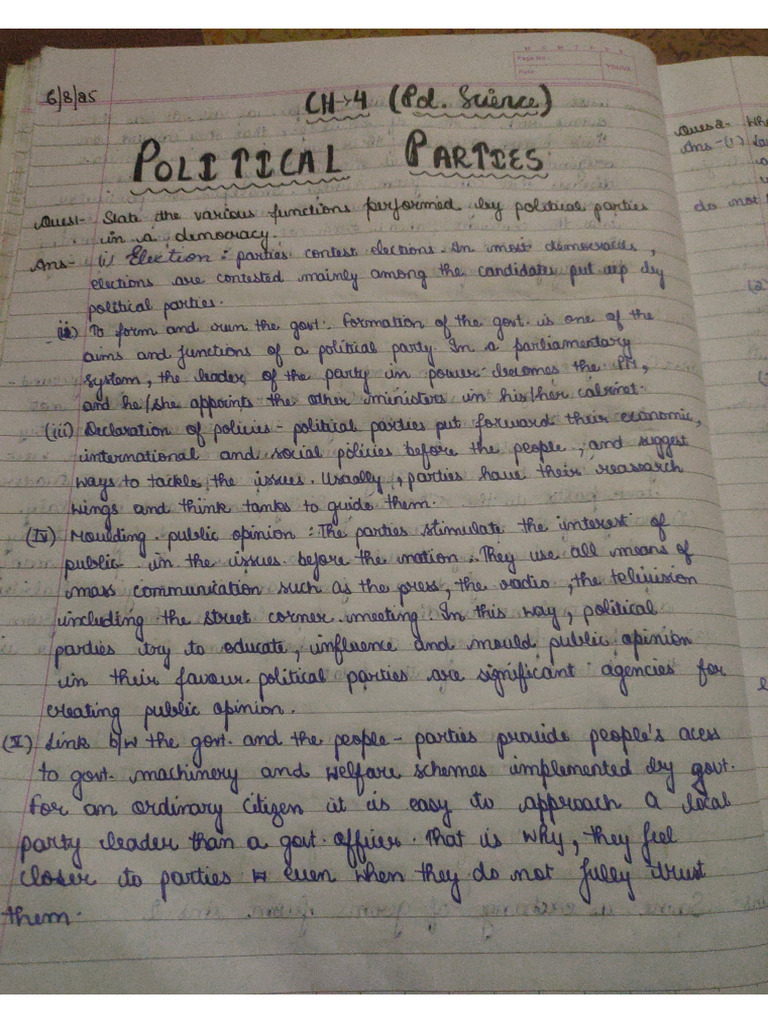 6/8/25
CH→4 (Pol. Science)
POLITICAL PARTIES
Ques1- State the various functions performed by political parties
in a democracy.
Ans- (i) Election : parties contest elections. In most democracies,
elections are contested mainly among the candidates put up by
political parties.
(ii) To form and run the govt:- Formation of the govt. is one of the
aims and functions of a political party. In a parliamentary
system, the leader of the party in power becomes the PM,
and he/she appoints the other ministers in his/her cabinet.
(iii) Declaration of policies - political parties put forward their economic,
international and social policies before the people, and suggest
ways to tackle the issues. Usually, parties have their reasearch
wings and think tanks to guide them.
(IV) Moulding public opinion : The parties stimulate the interest of
public in the issues before the nation. They use all means of
mass communication such as the press, the radio, the television
including the street corner meeting. In this way, political
parties try to educate, influence and mould public opinion
in their favour. political parties are significant agencies for
creating public opinion.
(V) Link b/w the govt. and the people - parties provide people's acess
to govt. machinery and welfare schemes implemented by govt.
For an ordinary citizen it is easy to approach a local
party leader than a govt. officer. That is why, they feel
closer to parties even when they do not fully trust
them.
Page No.
Date
Ques2- Wh
Ans-(1)
do not
(2)